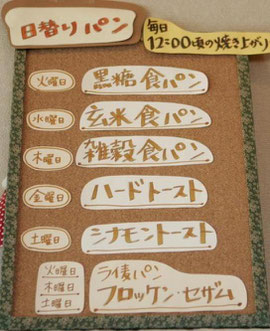 日替りパン
毎日
12:00頃の焼き上がり
火曜日 黒糖食パン
水曜日 玄米食パン
木曜日 雑穀食パン
金曜日 ハードトースト
土曜日 シナモントースト
火曜日
木曜日
土曜日
ライ麦パン
フロッケン・セザム